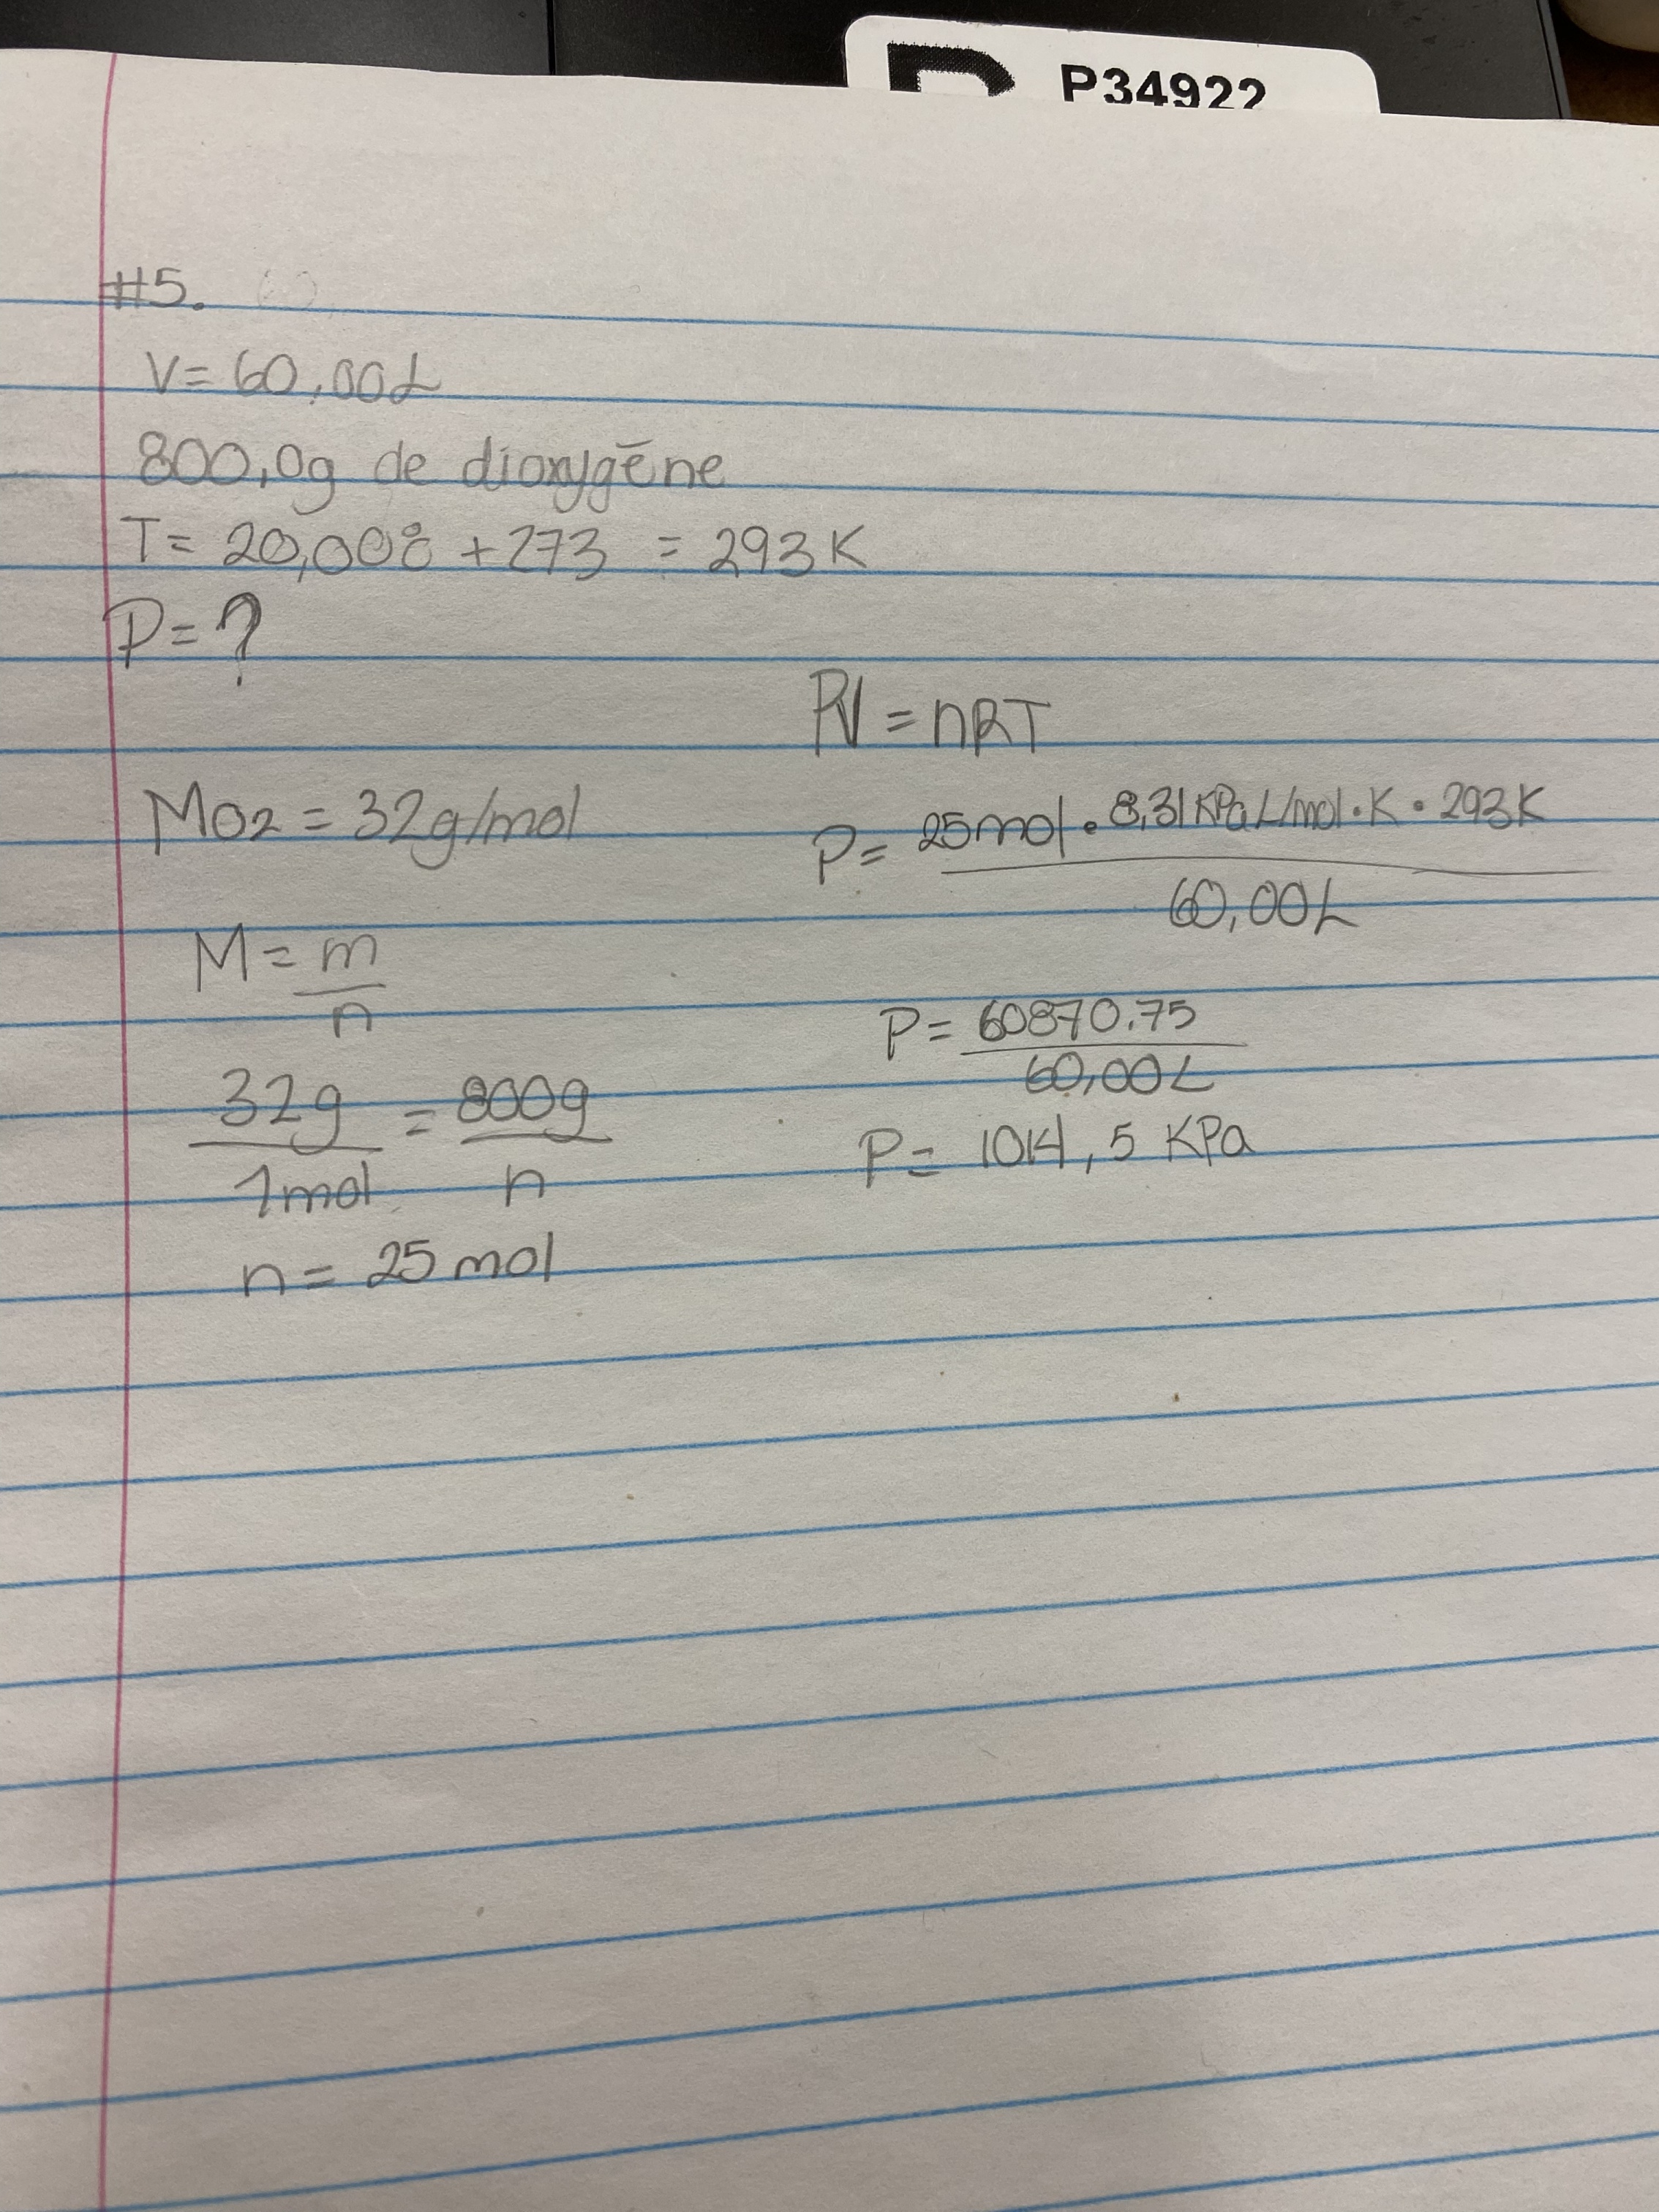 P34922
#5.
V= 60,00L
800,0g de dioxygēne
T= 20,00°C +273 = 293K
P= ?
PV = nRT
MO2 = 32g/mol
P= 25mol • 8,31 KPa L/mol • K • 293K
60,00L
M = m
n
P= 60870.75
60,00L
32g = 800g
1mol n
P= 1014,5 KPa
n= 25 mol